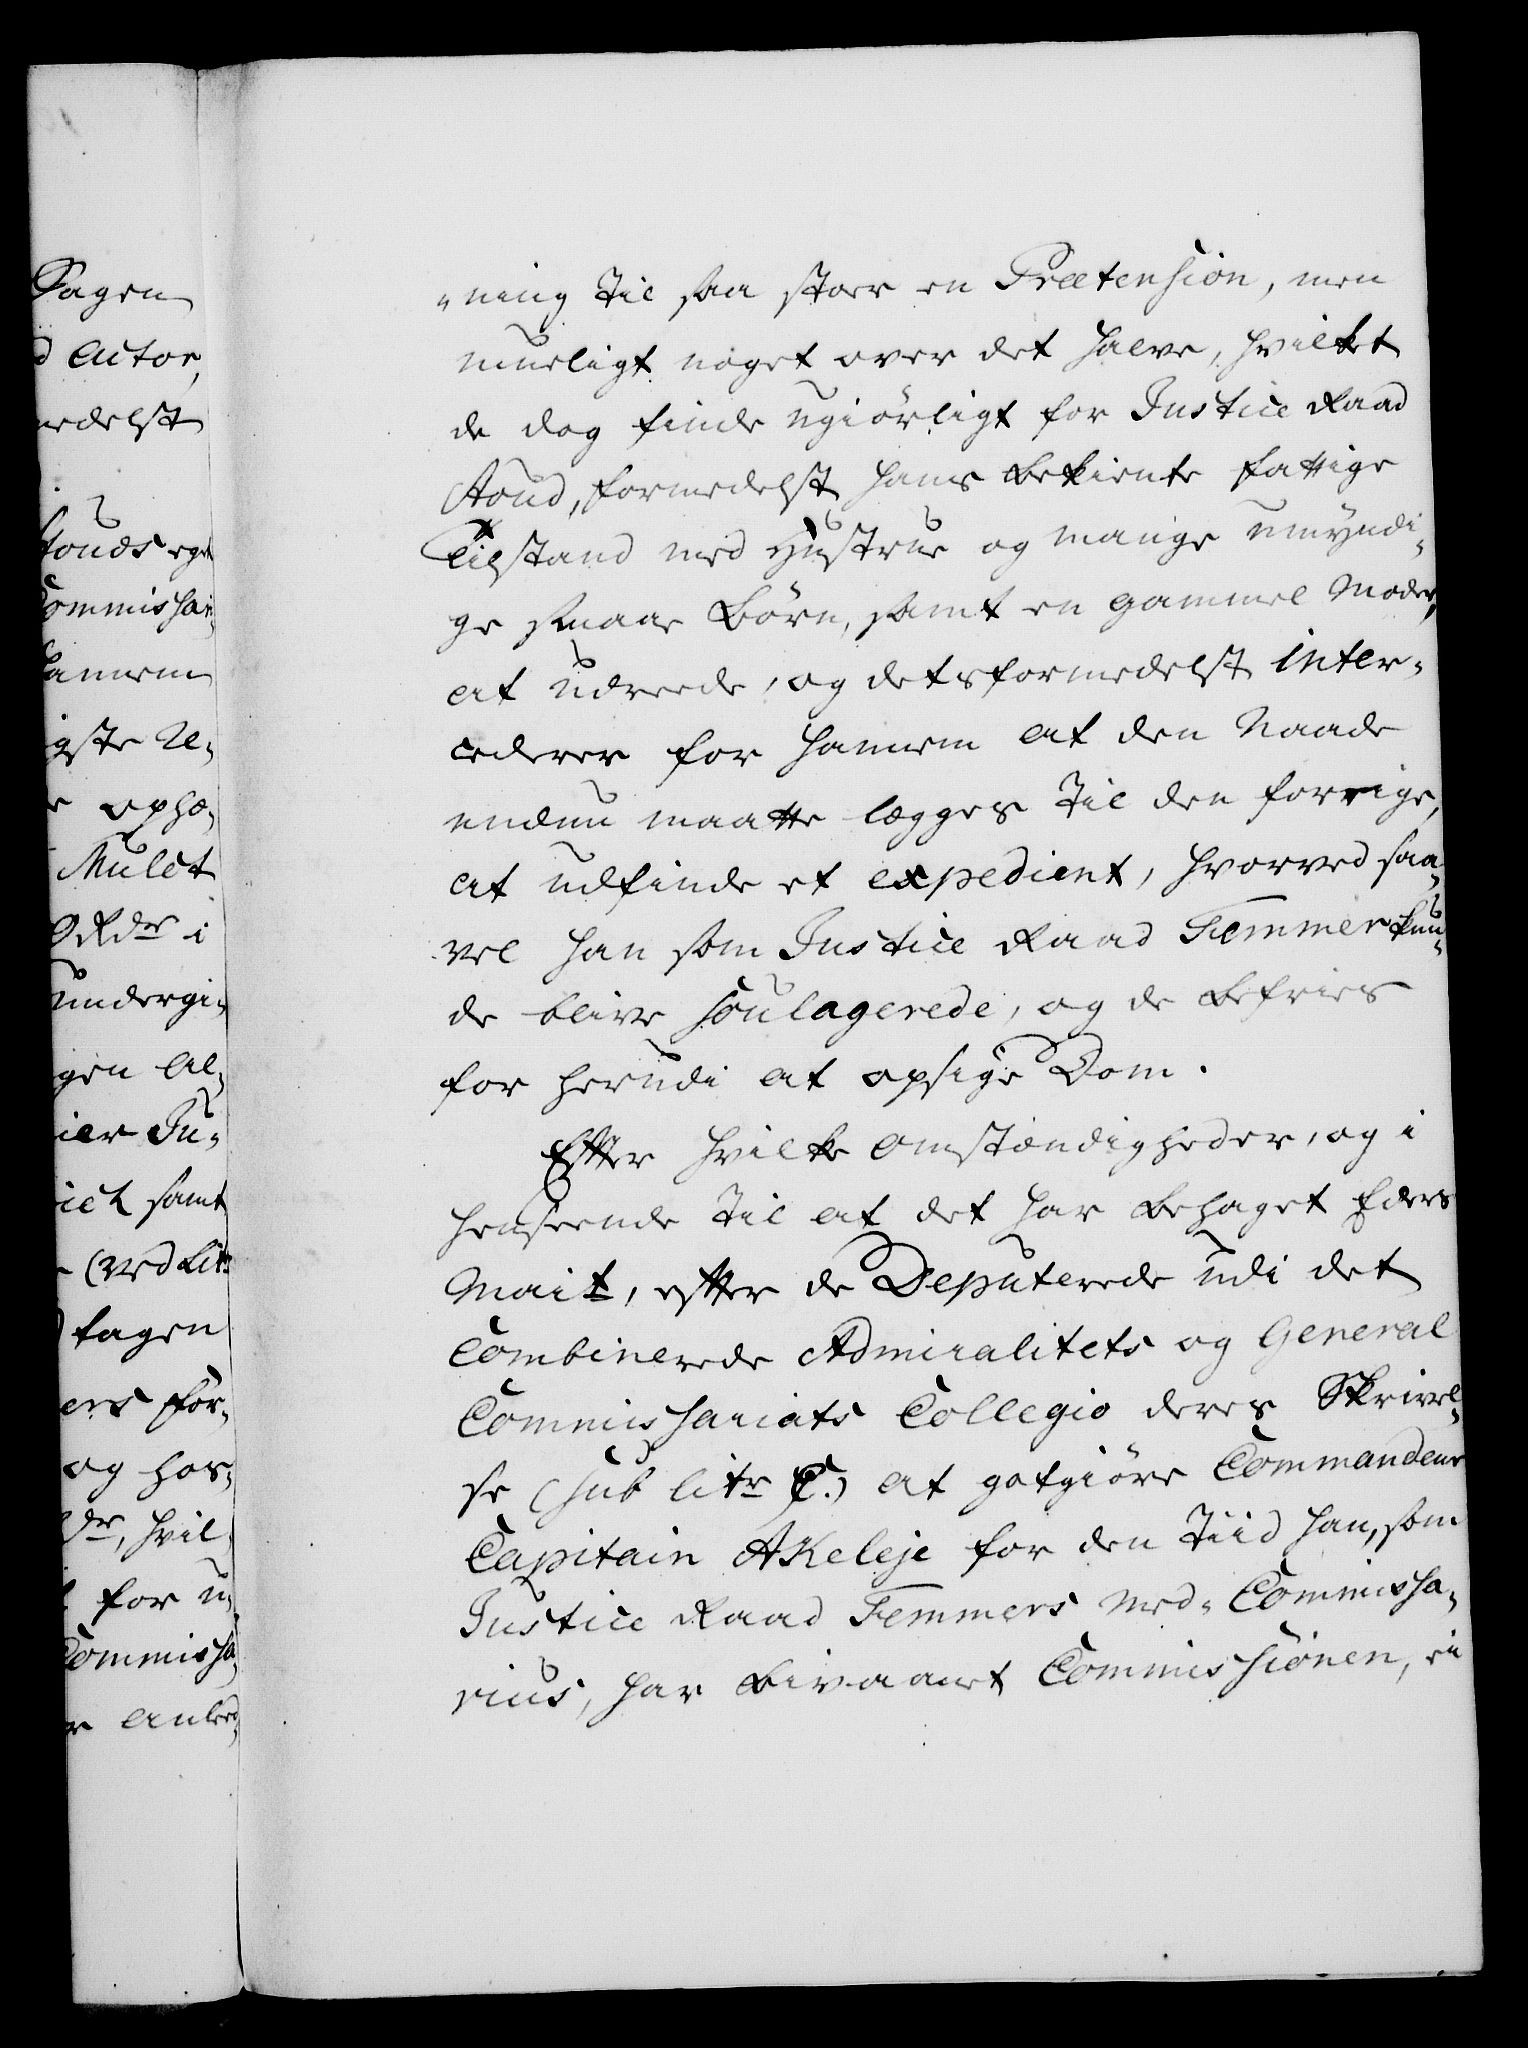 Sagen
d Actor,
medelst
Stouds eget
Commissari-
hannem
igste Re-
opho-
Mulct
Rdr i
undergi-
gen al-
ier Ju-
samt
(ved Litr
tagen
ers for-
og hos-
dr, hvil-
for u-
Commissa-
r anled-
-ning til saa stoer en Prætension, men
mueligt noget over det halve, hvilket
de dog finde ugiörligt for Justice Raad
Stoud, formedelst hans bekiente fattige
Tilstand med Hustrue og mange umyndi-
ge smaae Börn, samt en gammel Moder,
at udreede, og detsformedelst inter-
cederer for hannem at den Naade
endnu maatte lægges til den forrige,
at udfinde et expedient, hvorved saa-
vel han som Justice Raad Femmer kun-
de blive soulagerede, og de befries
for herudi at opsige Dom.
Efter hvilke Omstændigheder, og i
henseende til at det har behaget Eders
Mait, efter de Deputerede udi det
Combinerede Admiralitets og General
Commissariats Collegio deres Skrivel-
se (sub litr C.) at gotgiöre Commandeur
Capitain Akeleje for den Tiid han, som
Justice Raad Femmers Med-Commissa-
rius, har bivaanet Commissionen, en